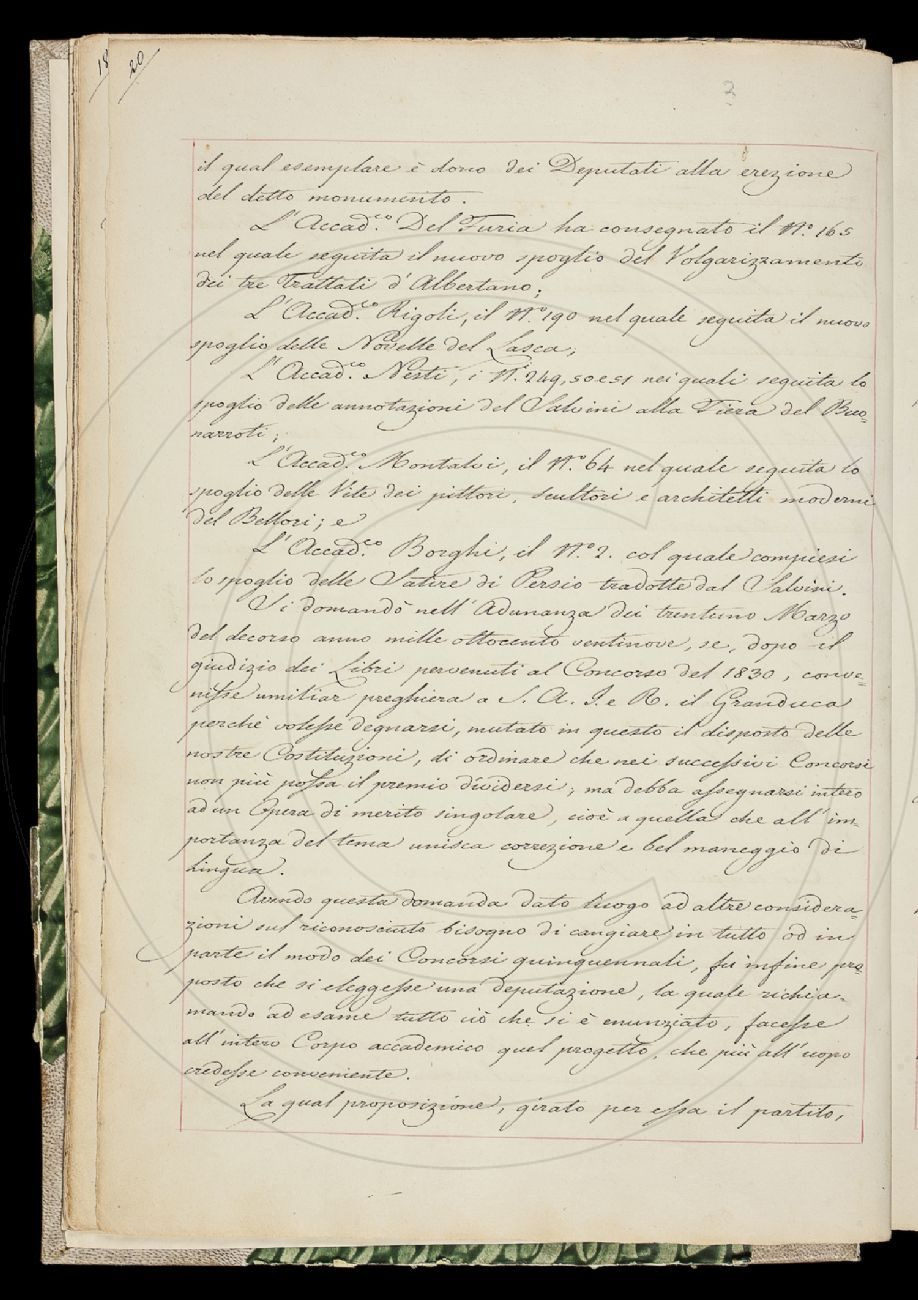 18
20
3
il qual esemplare è dono dei Deputati alla erezione
del detto monumento.
L'Accad.co Del Furia ha consegnato il N.o 165
nel quale seguita il nuovo spoglio del Volgarizzamenti
dei tre Trattati d'Albertano;
L'Accad.co Rigoli, il N.o 190 nel quale seguita il nuovo
spoglio delle Novelle del Lasca;
L'Accad.co Nesti, i N.i 249, 50 e 51 nei quali seguita lo
spoglio delle annotazioni del Salvini alla Fiera del Buo-
narroti;
L'Accad.co Montalvi, il N.o 64 nel quale seguita lo
spoglio delle Vite dei pittori, scultori e architetti moderni
del Bellori; e
L'Accad.co Borghi, il N.o 2. col quale compiesi
lo spoglio delle Satire di Persio tradotte dal Salvini.
Si domandò nell'Adunanza dei trentuno Marzo
del decorso anno mille ottocento ventinove, se, dopo il
giudizio dei Libri pervenuti al Concorso del 1830, conve-
nisse umiliar preghiera a S. A. I. e R. il Granduca
perchè volesse degnarsi, mutato in questo il disposto delle
nostre Costituzioni, di ordinare che nei successivi Concorsi
non più possa il premio dividersi; ma debba assegnarsi intero
ad un Opera di merito singolare, cioè a quella che all'im-
portanza del tema unisca correzione e bel maneggio di
Lingua.
Avendo questa domanda dato luogo ad altre considera-
zioni sul riconosciuto bisogno di cangiare in tutto od in
parte il modo dei Concorsi quinquennali, fu infine pro-
posto che si eleggesse una deputazione, la quale richia-
mando ad esame tutto ciò che si è enunziato, facesse
all'intero Corpo accademico quel progetto, che più all'uopo
credesse conveniente.
La qual proposizione, girato per essa il partito,